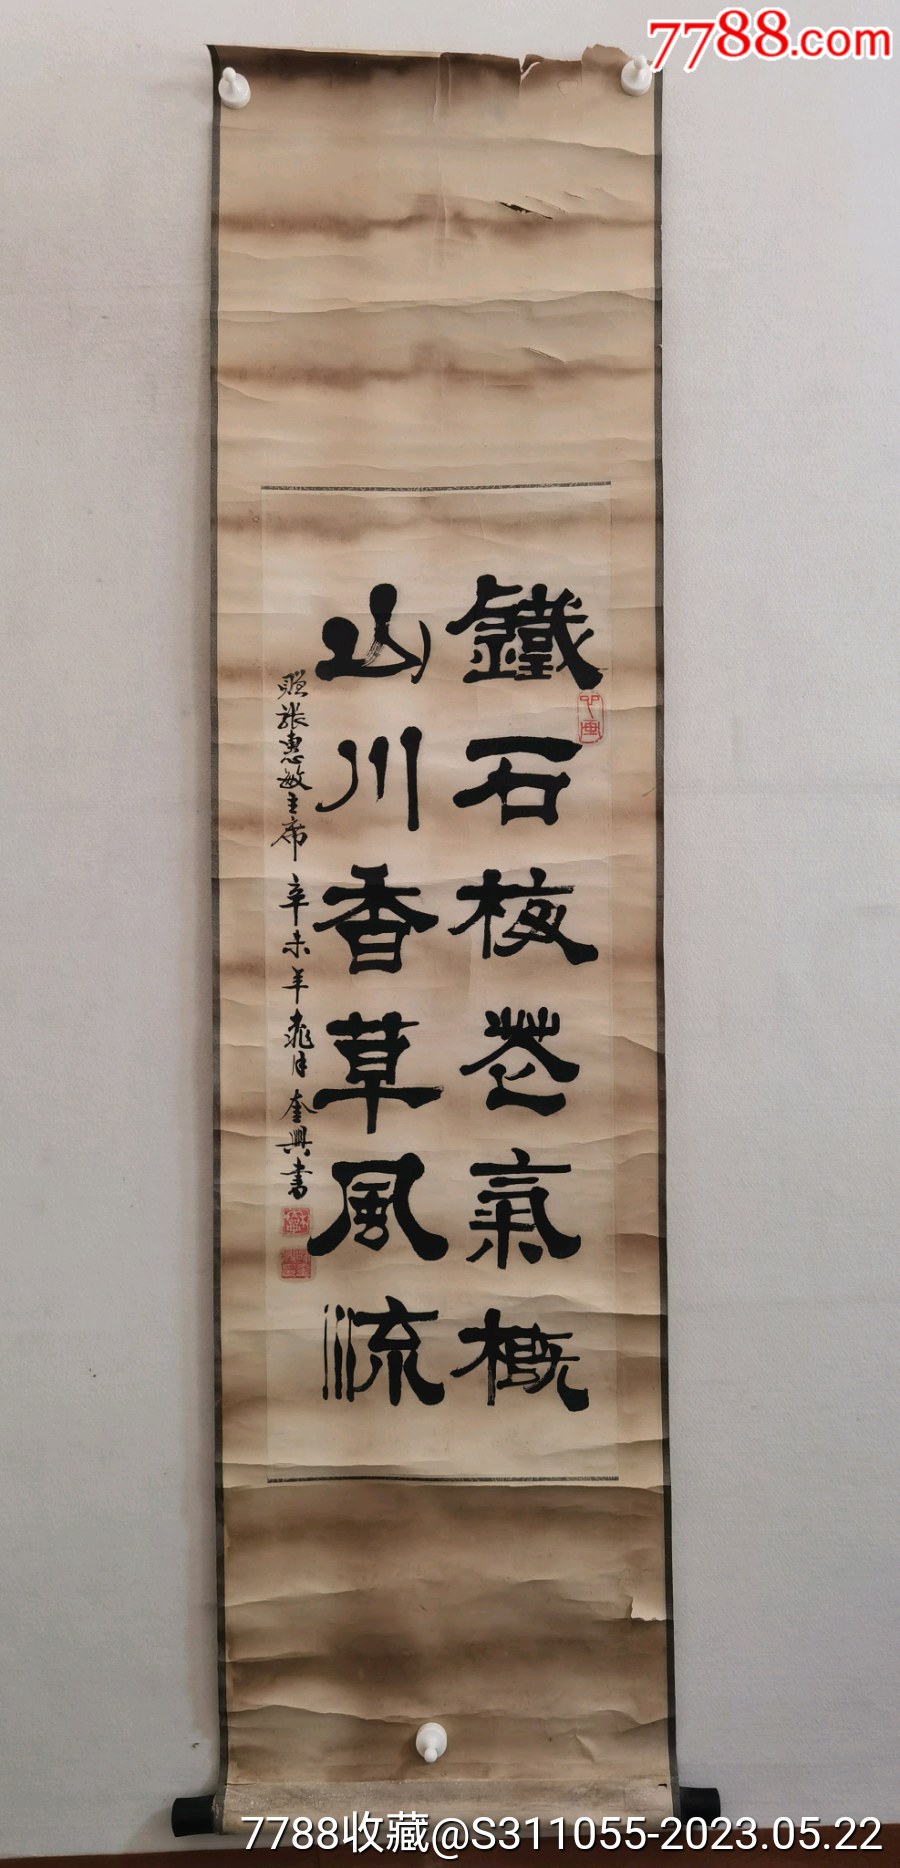 7788.com
鐵石梅花氣概
山川香草風流
張惠敏主席 辛未年 月 奎興書
7788收藏@S311055-2023.05.22